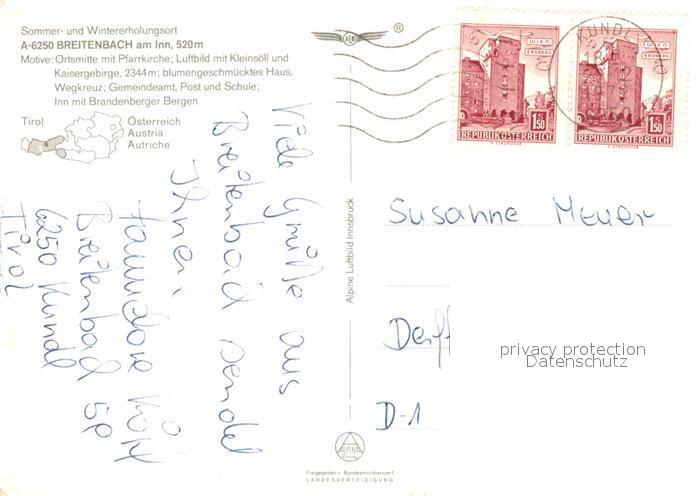 Sommer- und Wintererholungsort
A-6250 BREITENBACH am Inn, 520m
Motive: Ortsmitte mit Pfarrkirche; Luftbild mit Kleinsöll und
Kaisergebirge, 2344m; blumengeschmücktes Haus,
Wegkreuz; Gemeindeamt, Post und Schule;
Inn mit Brandenberger Bergen
Tirol
Österreich
Austria
Autriche
®
WIEN
ERDBERG
1.50
REPUBLIK ÖSTERREICH
WIEN
ERDBERG
1.50
REPUBLIK ÖSTERREICH
KUNDL
Viele Grüße aus
Breitenbach sendet
Ihnen
Breitenbach 59
6250 Kundl
Tirol
Alpine Luftbild Innsbruck
Susanne Meuer
D-1
privacy protection
Datenschutz
ALPINA
Freigegeben v. Bundesministerium f.
LANDESVERTEIDIGUNG